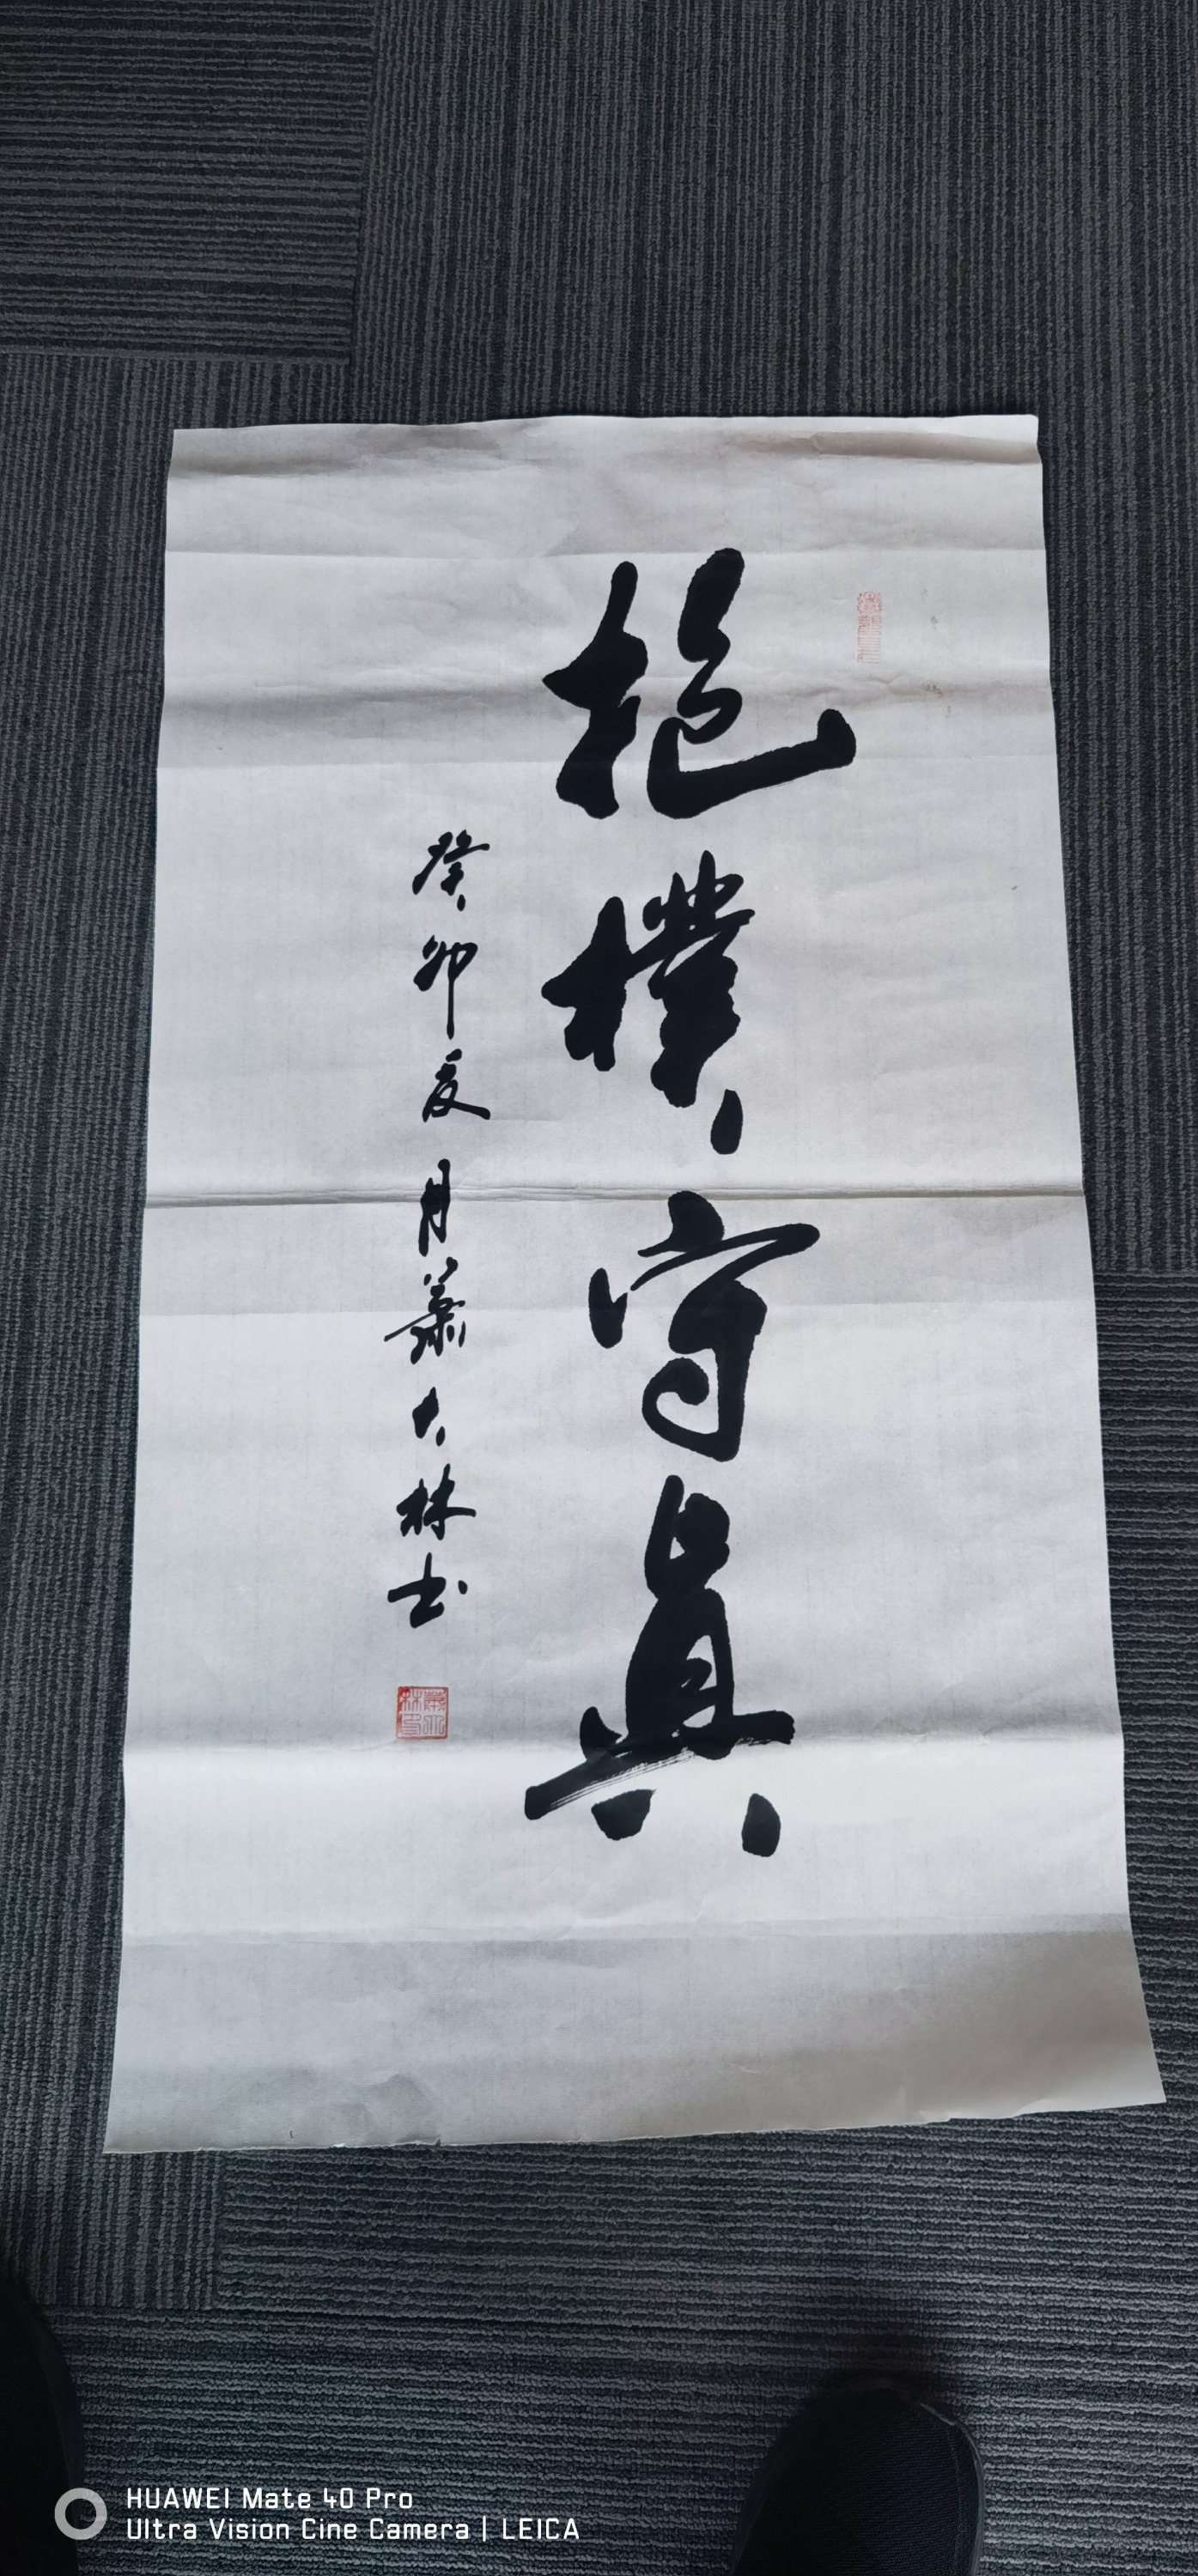 抱樸守真
癸卯夏月蕭大林书
HUAWEI Mate 40 Pro
Ultra Vision Cine Camera | LEICA